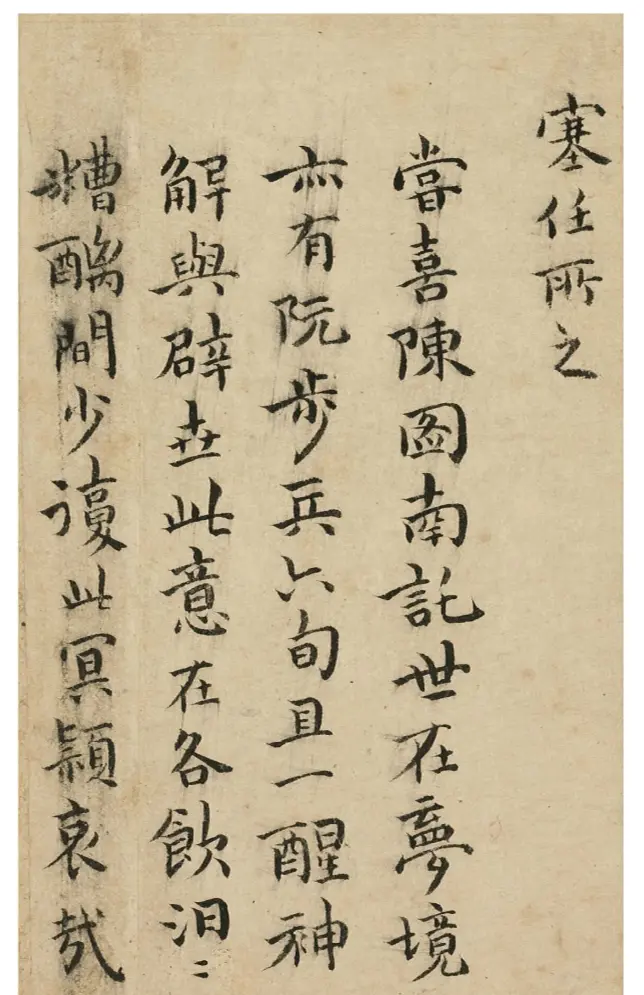 塞任所之
嘗喜陳圖南託世在夢境
亦有阮步兵六旬且一醒神
解與辟世此意在各飲汨〻
糟醨間少復此冥穎哀哉